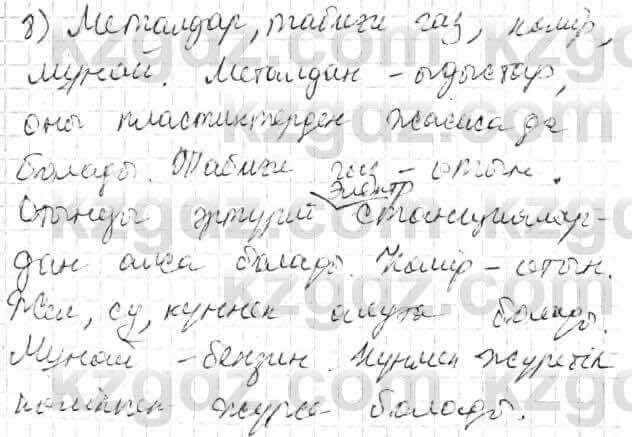 8) Металдар, табиғи газ, көмір,
мұнай. Металдан - ыдыстар,
оны пластиктерден жасаса да
болады. Табиғи газ - отын.
Отынды әртүрлі электр станциялар-
дан алса болады. Көмір - отын.
Жел, су, күннен алуға болады.
Мұнай - бензин. Күнмен жүретін
көлікпен жүрсе болады.
kzgdz.com